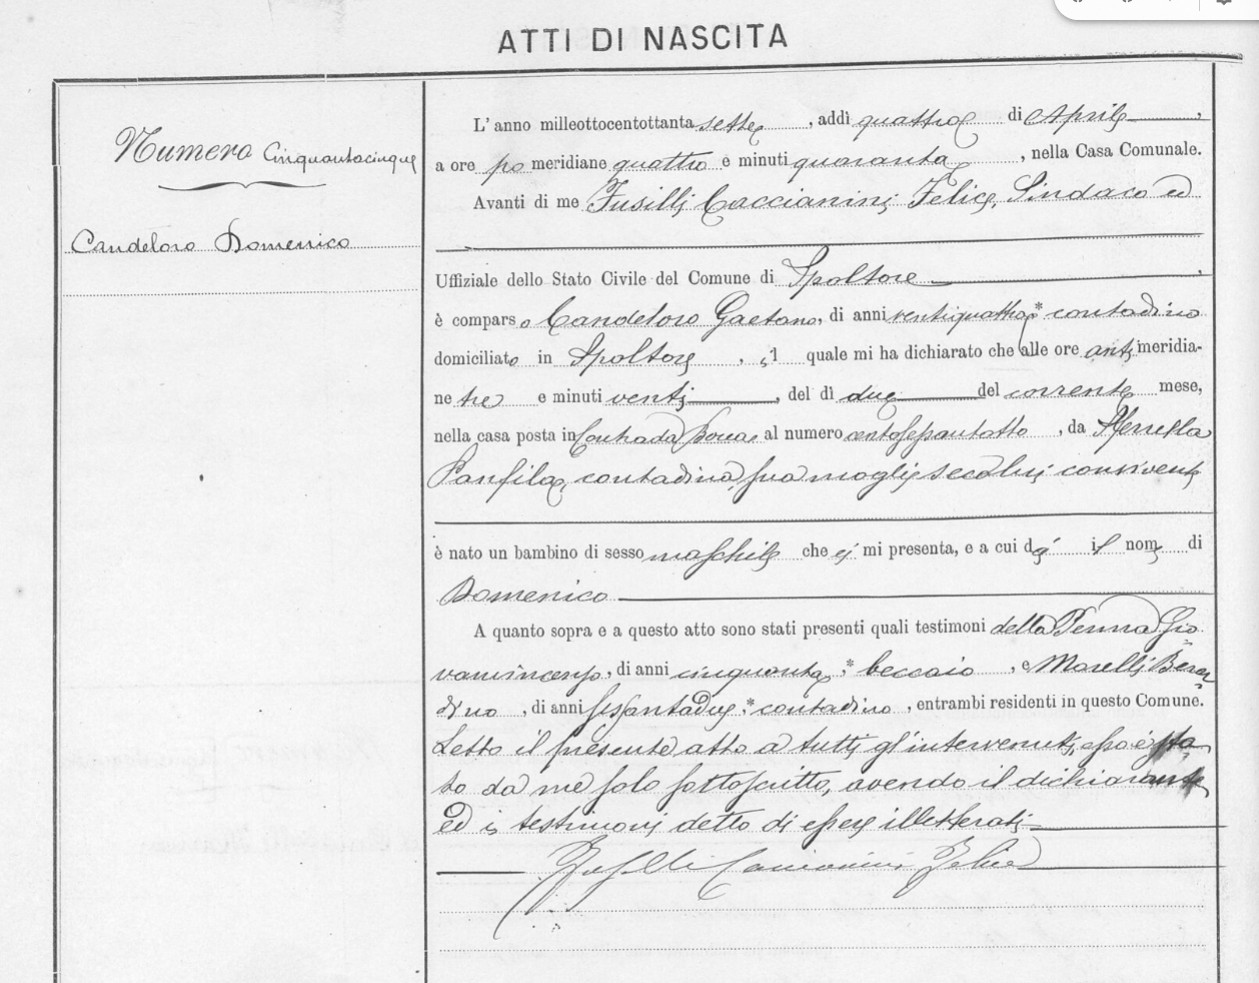 ATTI DI NASCITA
Numero Cinquantacinque
Candeloro Domenico
L'anno milleottocentottanta sette, addì quattro di Aprile,
a ore po meridiane quattro e minuti quaranta, nella Casa Comunale.
Avanti di me Fusilli Caccianini Felice, Sindaco ed
Uffiziale dello Stato Civile del Comune di Spoltore,
è comparso Candeloro Gaetano, di anni ventiquattro * contadino
domiciliato in Spoltore, il quale mi ha dichiarato che alle ore anti meridia-
ne tre e minuti venti, del dì due del corrente mese,
nella casa posta in Contrada al numero , da
Panfila, contadina, sua moglie seco lui convivente
è nato un bambino di sesso maschile che ei mi presenta, e a cui dà il nome di
Domenico
A quanto sopra e a questo atto sono stati presenti quali testimoni della Penna Gio
vanvincenzo, di anni cinquanta, * beccaio, e Morelli Berar
dino, di anni sessantadue, * contadino, entrambi residenti in questo Comune.
Letto il presente atto a tutti gl'intervenuti, esso è sta
to da me solo sottoscritto, avendo il dichiarante
ed i testimoni detto di essere illetterati
Fusilli Caccianini Felice